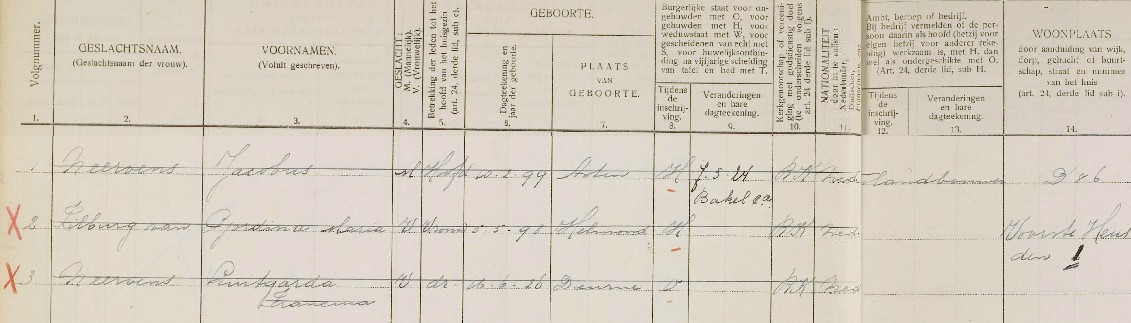 Volgnummer.
GESLACHTSNAAM.
(Geslachtsnaam der vrouw).
VOORNAMEN.
(Voluit geschreven).
GESLACHT:
M. (Mannelijk).
V. (Vrouwelijk).
Betrekking der leden tot het
hoofd van het huisgezin
(art. 24, derde lid, sub c).
GEBOORTE.
Dagteekening en
jaar der geboorte.
PLAATS
VAN
GEBOORTE.
Burgerlijke staat voor on-
gehuwden met O, voor
gehuwden met H, voor
weduwstaat met W, voor
gescheidenen van echt met
S, voor huwelijksontbin-
ding na vijfjarige scheiding
van tafel en bed met T.
Tijdens
de
inschrij-
ving.
Veranderingen
en hare
dagteekening.
Kerkgenootschap of vereeni-
ging met godsdienstig doel
(te onderscheiden volgens
art. 24 derde lid sub f).
NATIONALITEIT
door in te vullen:
Nederlander,
Ambt, beroep of bedrijf.
Bij bedrijf vermelden of de per-
soon daarin als hoofd (hetzij voor
eigen hetzij voor anderer reke-
ning) werkzaam is, met H. dan
wel als ondergeschikte met O.
(Art. 24, derde lid, sub H.
Tijdens
de
inschrij-
ving.
Veranderingen
en hare
dagteekening.
WOONPLAATS
door aanduiding van wijk,
dorp, gehucht of buurt-
schap, straat en nummer
van het huis
(art. 24, derde lid sub i).
1. 2. 3. 4. 5. 6. 7. 8. 9. 10. 11. 12. 13. 14.
1 Neervens Jacobus M Hoofd 10-2-99 Asten H 7-5-24 RK Nede Landbouwer D 86
Bakel ca
X 2 Tilburg van Gordina Maria V Vrouw 5-98 Helmond H RK Nede Voorste Heus
den 1
X 3 Neervens Luitgarda V dr. 16-6-26 Deurne RK Nede
Francina